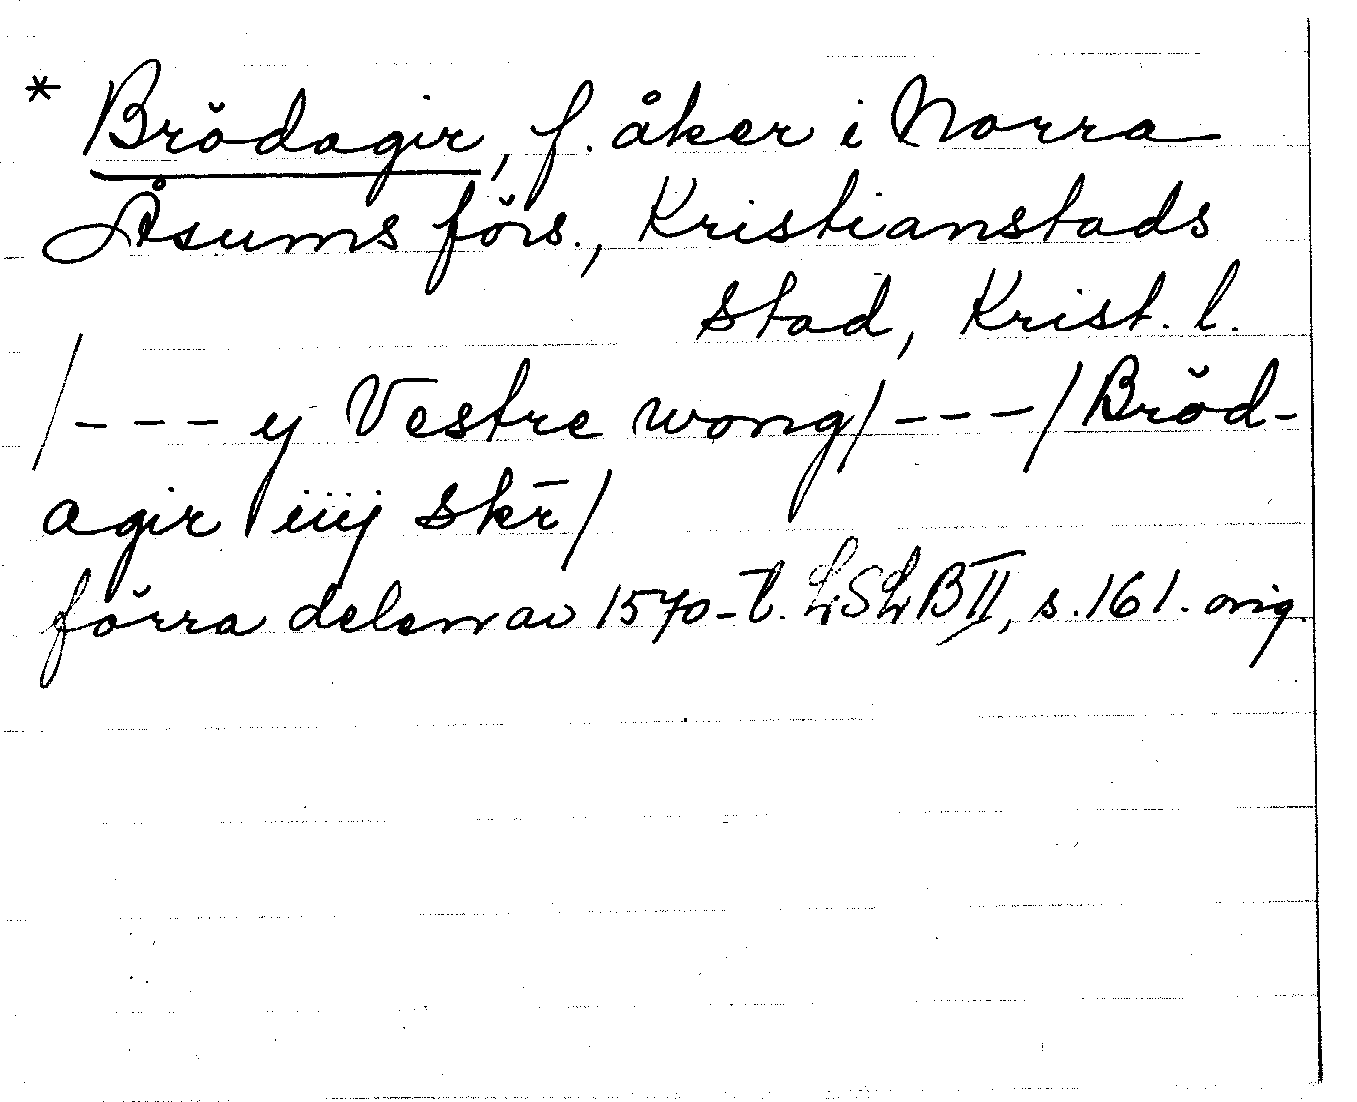 * Brödagir, f. åker i Norra
Åsums förs., Kristianstads
stad, Krist. l.
/--- y Vestre wong/---/Bröd-
agir iiij skr̄/
förra delen av 1570-t. LSLB II, s. 161. orig.